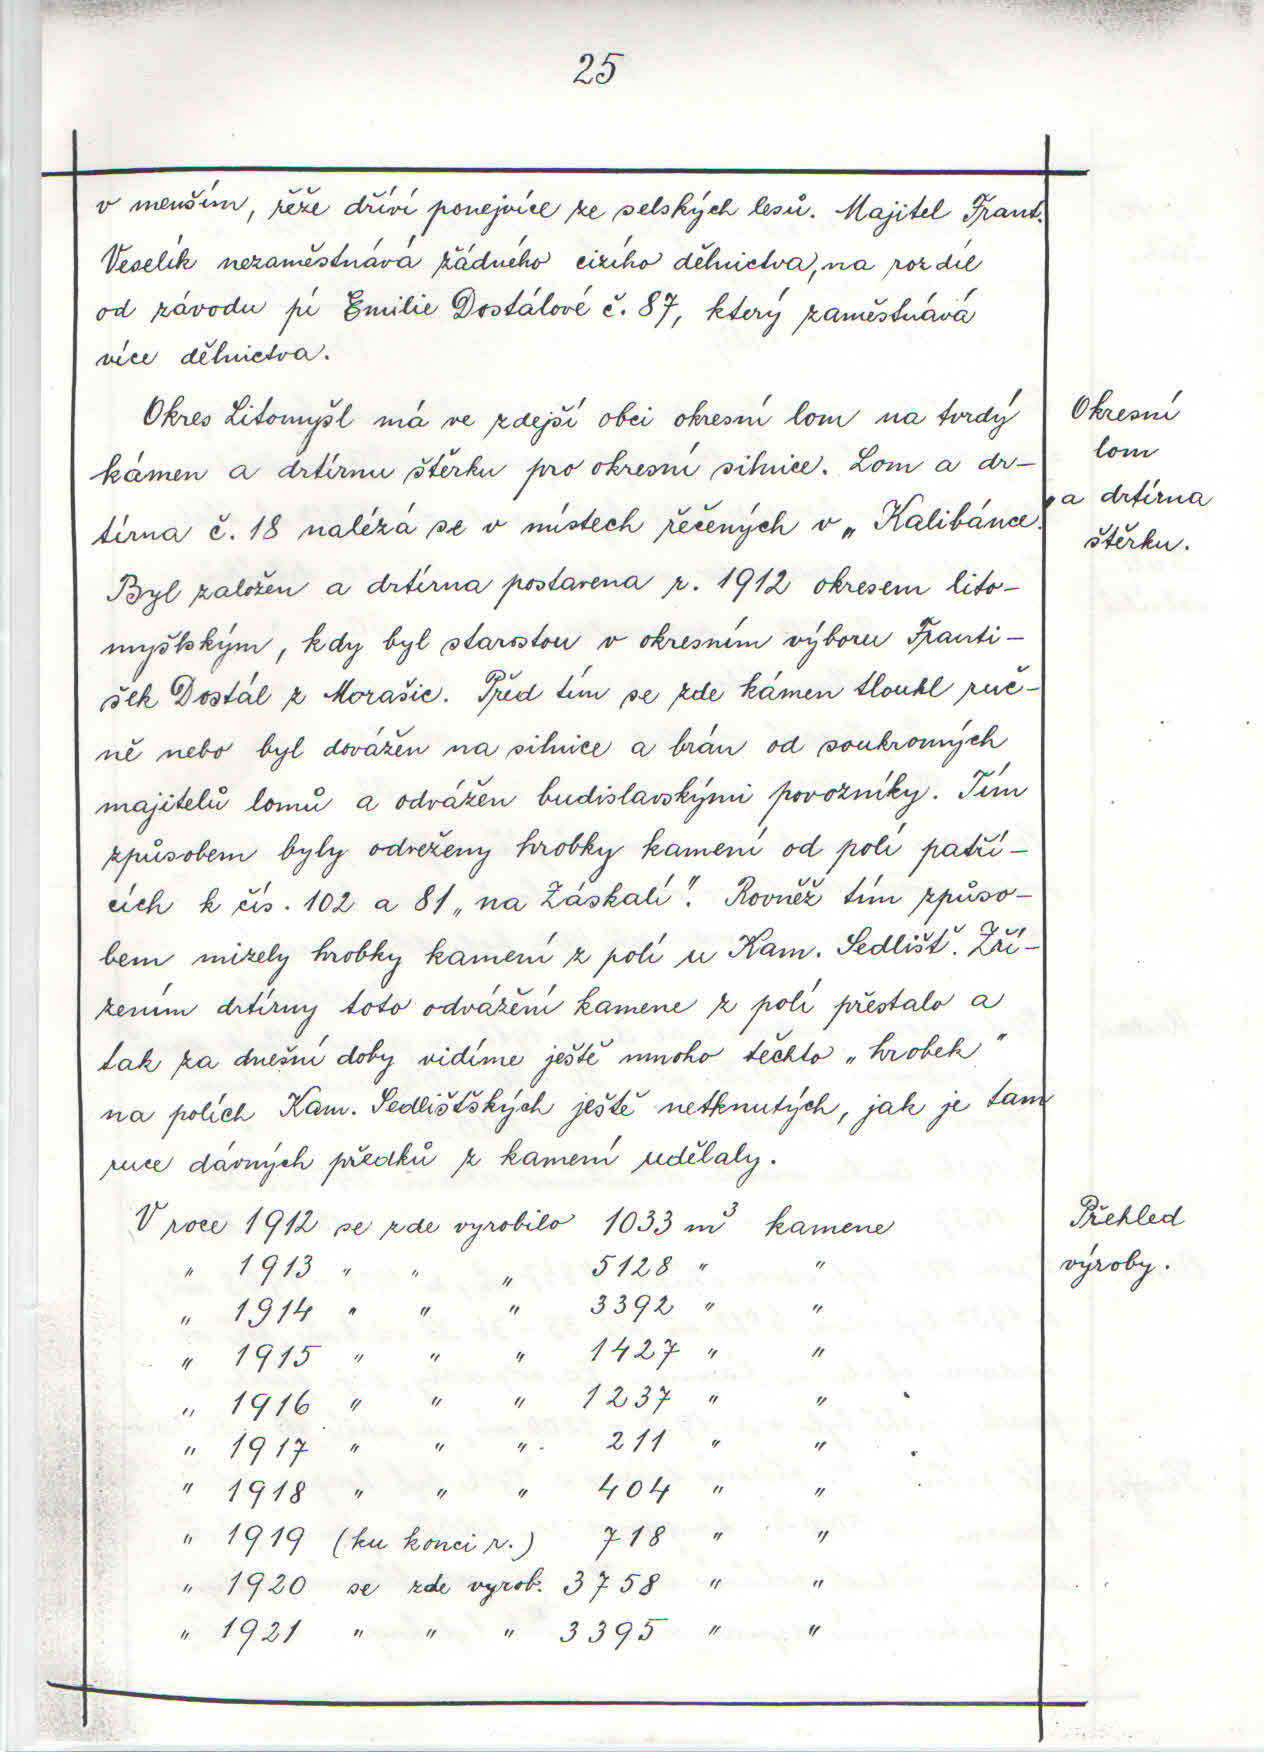 25
v menším, řěže dříví ponejvíce ze selských lesů. Majitel Frant.
Veselík nezaměstnává žádného cizího dělnictva, na rozdíl
od závodu pí Emilie Dostálové č. 87, který zaměstnává
více dělnictva.
Okres Litomyšl má ve zdejší obci okresní lom na tvrdý
kámen a drtírnu štěrku pro okresní silnice. Lom a dr-
tírna č. 18 nalézá se v místech řečených v „Kalibánce."
Okresní
lom
a drtírna
štěrku.
Byl založen a drtírna postavena r. 1912 okresem lito-
myšlským, kdy byl starostou v okresním výboru Franti-
šek Dostál z Morašic. Před tím se zde kámen tloukl ruč-
ně nebo byl dovážen na silnice a brán od soukromých
majitelů lomů a odvážen budislavskými povozníky. Tím
způsobem byly odvezeny hrobky kamení od polí patří-
cích k čís. 102 a 81 „na Záskalí". Rovněž tím způso-
bem mizely hrobky kamení z polí u Kam. Sedlišť. Zří-
zením drtírny toto odvážění kamene z polí přestalo a
tak za dnešní doby vidíme ještě mnoho těchto „hrobek"
na polích Kam. Sedlišťských ještě netknutých, jak je tam
ruce dávných předků z kamení udělaly.
V roce 1912 se zde vyrobilo 1033 m³ kamene
Přehled
výroby.
" 1913 " " " 5128 " "
" 1914 " " " 3392 " "
" 1915 " " " 1427 " "
" 1916 " " " 1237 " "
" 1917 " " " 211 " "
" 1918 " " " 404 " "
" 1919 (ku konci r.) 718 " "
" 1920 se zde vyrob. 3758 " "
" 1921 " " " 3395 " "